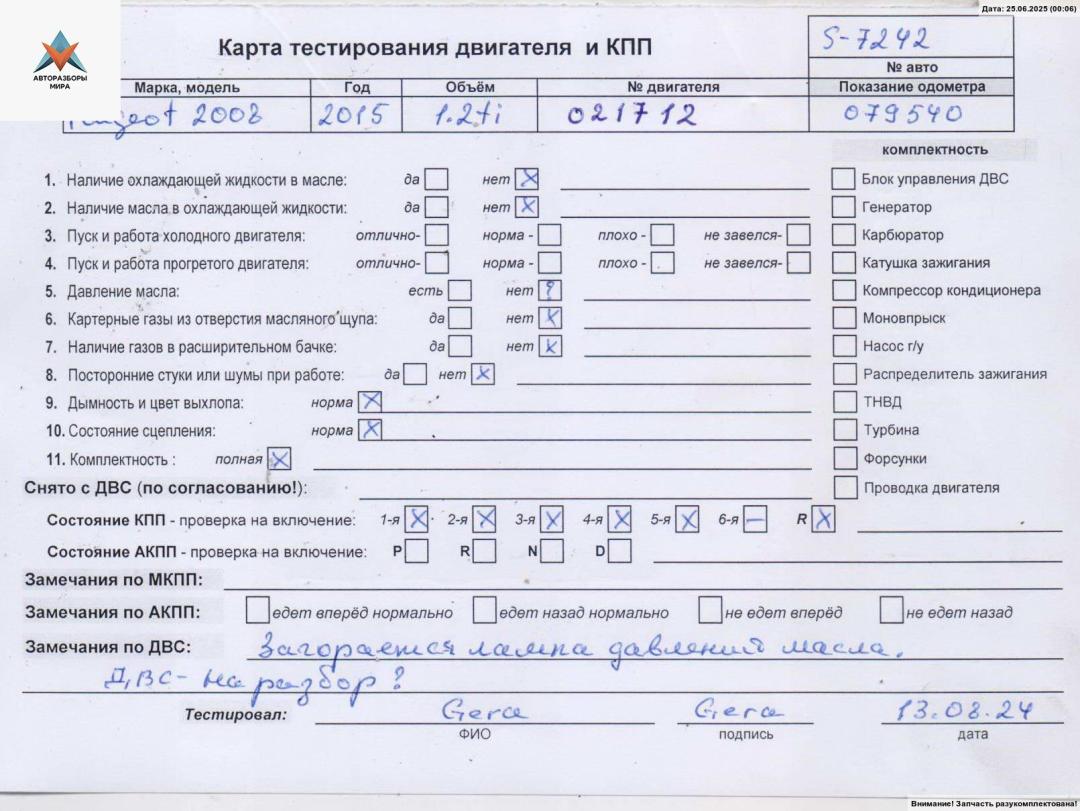 Дата: 25.06.2025 (00:06)
АВТОРАЗБОРЫ
МИРА
Карта тестирования двигателя и КПП
S-7242
№ авто
Марка, модель Год Объём № двигателя Показание одометра
Peugeot 2008 2015 1.2ti 021712 079540
комплектность
1. Наличие охлаждающей жидкости в масле: да нет X Блок управления ДВС
2. Наличие масла в охлаждающей жидкости: да нет X Генератор
3. Пуск и работа холодного двигателя: отлично- норма - плохо - не завелся- Карбюратор
4. Пуск и работа прогретого двигателя: отлично- норма - плохо - не завелся- Катушка зажигания
5. Давление масла: есть нет ? Компрессор кондиционера
6. Картерные газы из отверстия масляного щупа: да нет X Моновпрыск
7. Наличие газов в расширительном бачке: да нет X Насос г/у
8. Посторонние стуки или шумы при работе: да нет X Распределитель зажигания
9. Дымность и цвет выхлопа: норма X ТНВД
10. Состояние сцепления: норма X Турбина
11. Комплектность : полная X Форсунки
Снято с ДВС (по согласованию!): Проводка двигателя
Состояние КПП - проверка на включение: 1-я X 2-я X 3-я X 4-я X 5-я X 6-я — R X
Состояние АКПП - проверка на включение: P R N D
Замечания по МКПП:
Замечания по АКПП: едет вперёд нормально едет назад нормально не едет вперёд не едет назад
Замечания по ДВС: Загорается лампа давлений масла.
ДВС - на разбор ?
Тестировал: Gera Gera 13.08.24
ФИО подпись дата
Внимание! Запчасть разукомплектована!